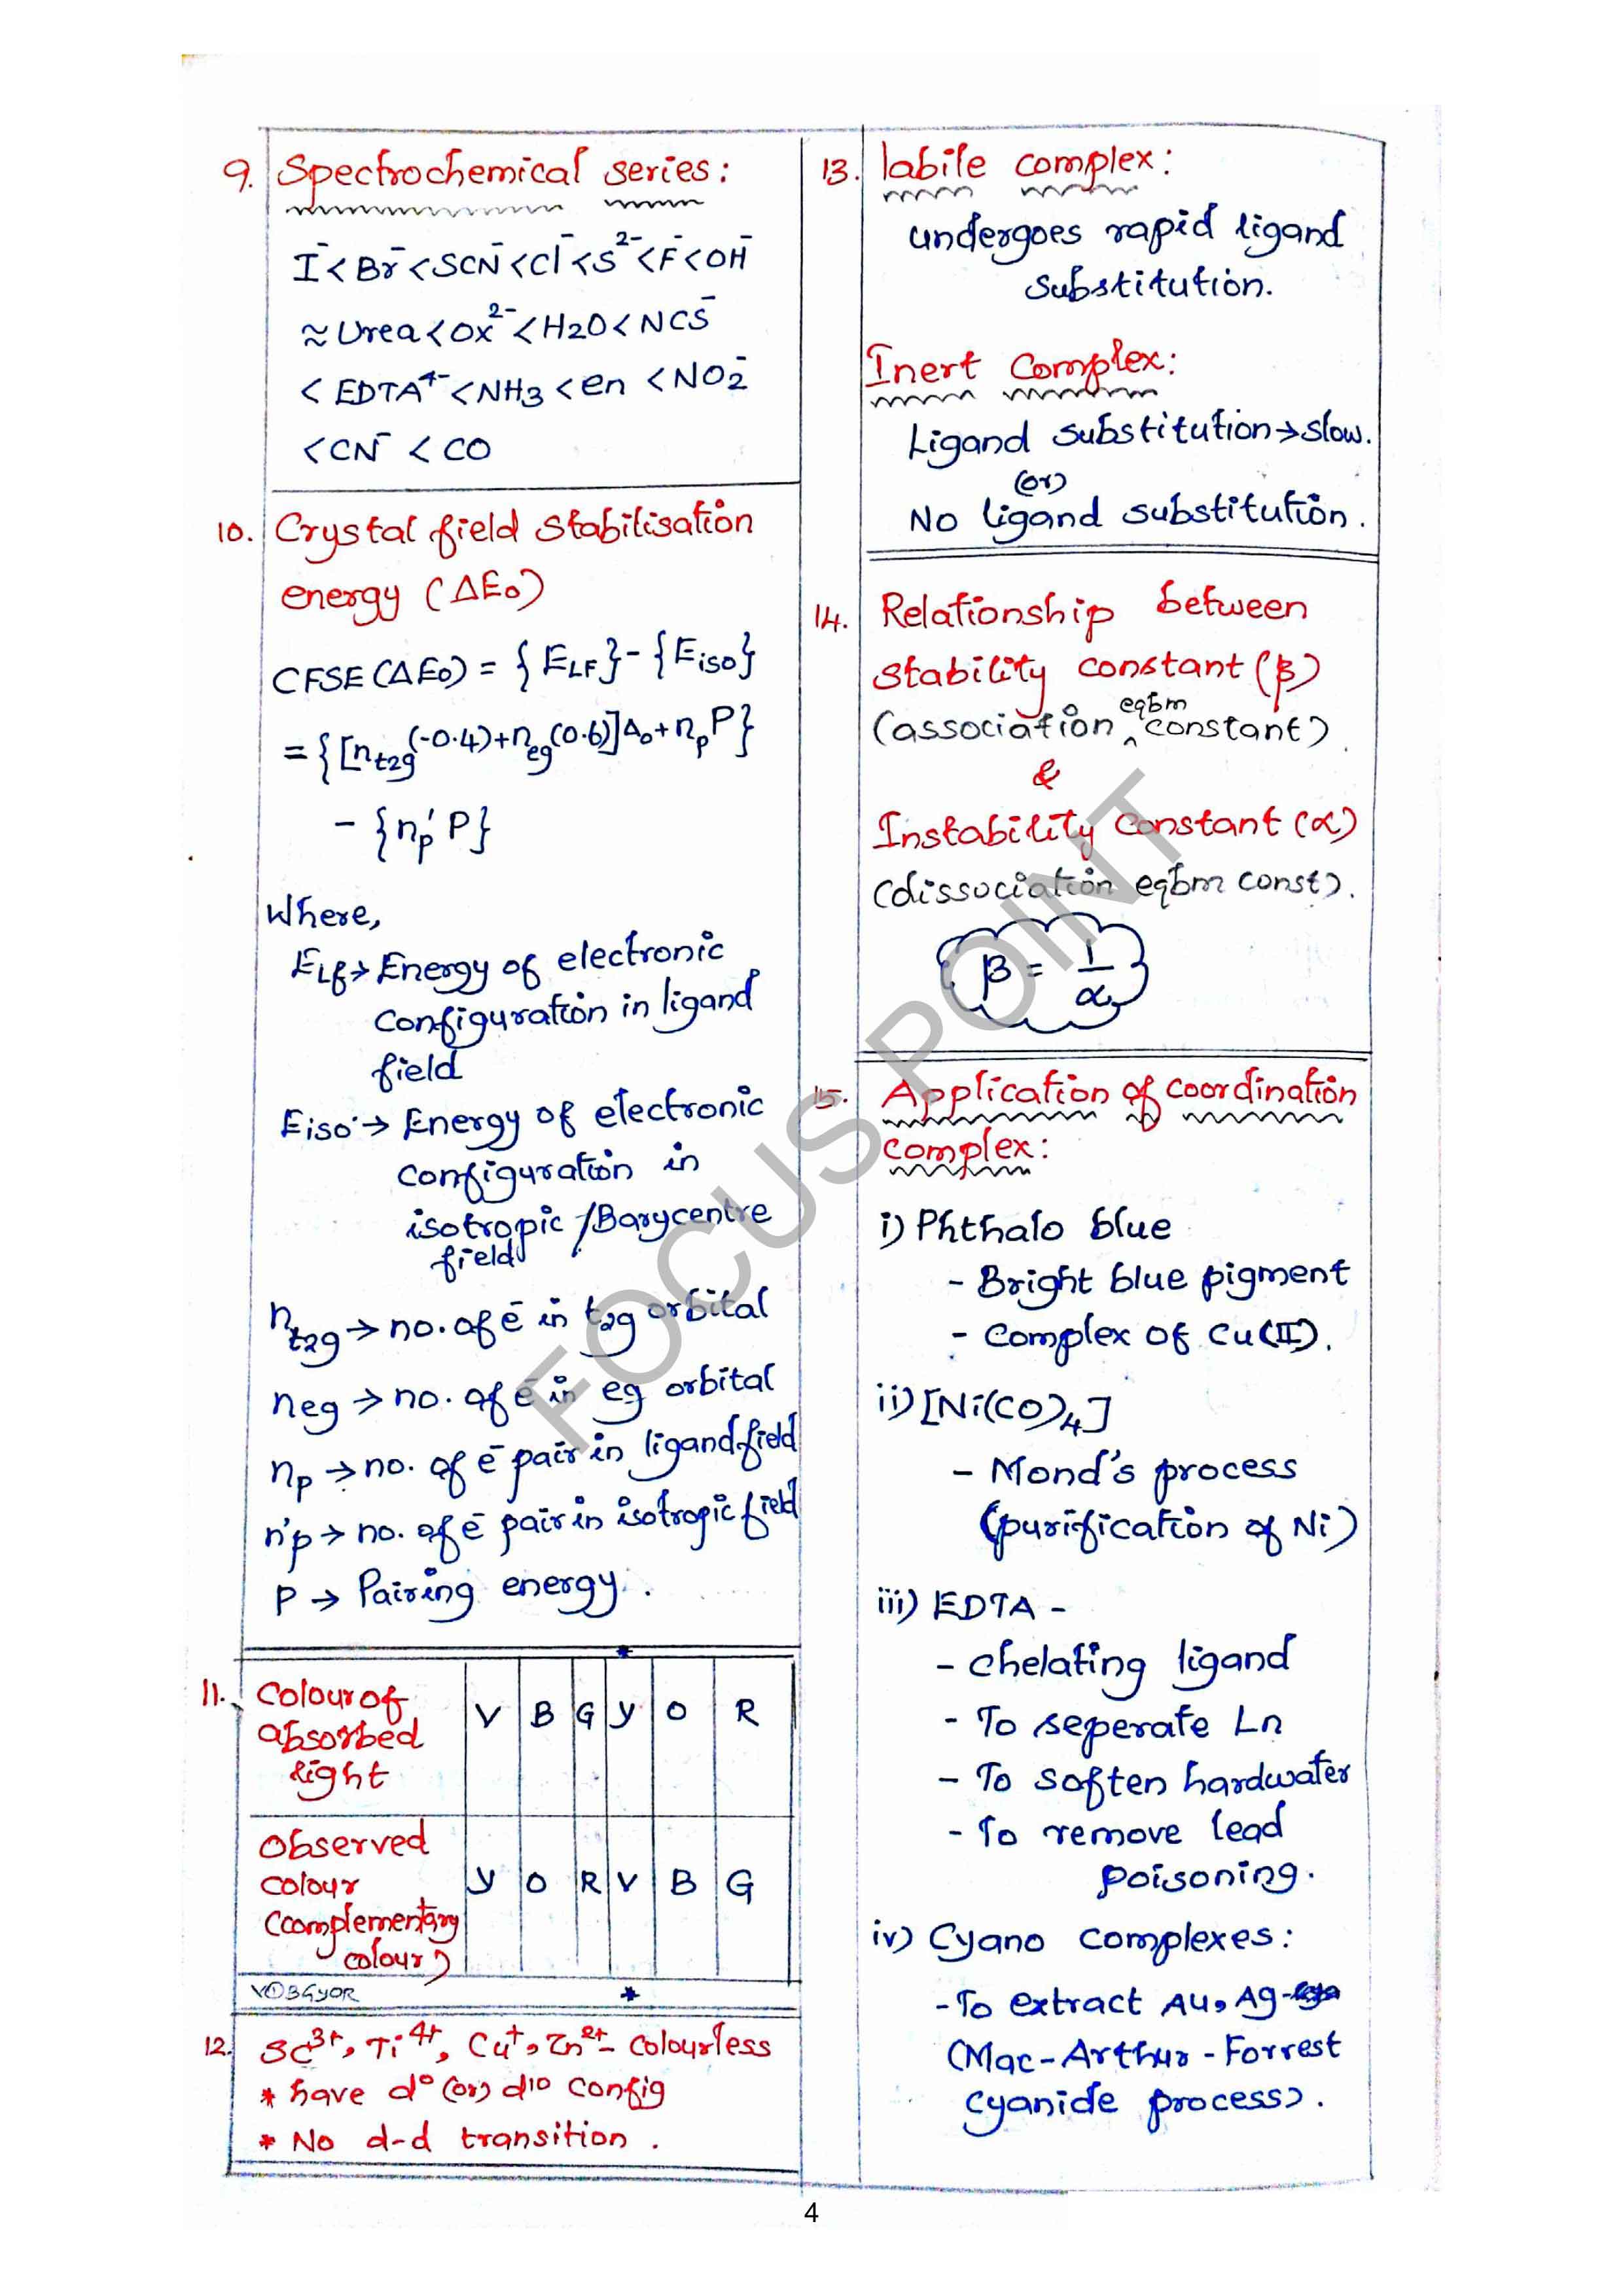 9. Spectrochemical series:
I⁻ < Br⁻ < SCN⁻ < Cl⁻ < S²⁻ < F⁻ < OH⁻
≈ Urea < Ox²⁻ < H2O < NCS⁻
< EDTA⁴⁻ < NH3 < en < NO2⁻
< CN⁻ < CO
10. Crystal field stabilisation
energy (ΔE₀)
CFSE (ΔE₀) = {E_LF} - {E_iso}
= {[n_t2g(-0.4) + n_eg(0.6)]Δ₀ + n_p P}
- {n'_p P}
Where,
E_Lf → Energy of electronic
configuration in ligand
field
E_iso → Energy of electronic
configuration in
isotropic / Barycentre
field
n_t2g → no. of e⁻ in t2g orbital
neg → no. of e⁻ in eg orbital
n_p → no. of e⁻ pair in ligand field
n'p → no. of e⁻ pair in isotropic field
P → Pairing energy.
11. Colour of absorbed light V B G Y O R
Observed colour (complementary colour) Y O R V B G
VIBGYOR *
12. Sc³⁺, Ti⁴⁺, Cu⁺, Zn²⁺ - Colourless
* have d⁰ (or) d¹⁰ config
* No d-d transition.
13. labile complex:
undergoes rapid ligand
substitution.
Inert Complex:
Ligand substitution → slow.
(or)
No ligand substitution.
14. Relationship between
stability constant (β)
(association eqbm constant).
&
Instability Constant (α)
(dissociation eqbm const).
β = 1/α
15. Application of coordination
complex:
i) Phthalo blue
- Bright blue pigment
- Complex of Cu(II).
ii) [Ni(CO)4]
- Mond's process
(purification of Ni)
iii) EDTA -
- chelating ligand
- To seperate Ln
- To soften hardwater
- To remove lead
poisoning.
iv) Cyano complexes:
- To extract Au, Ag -
(Mac-Arthur-Forrest
cyanide process).
FOCUS POINT
4